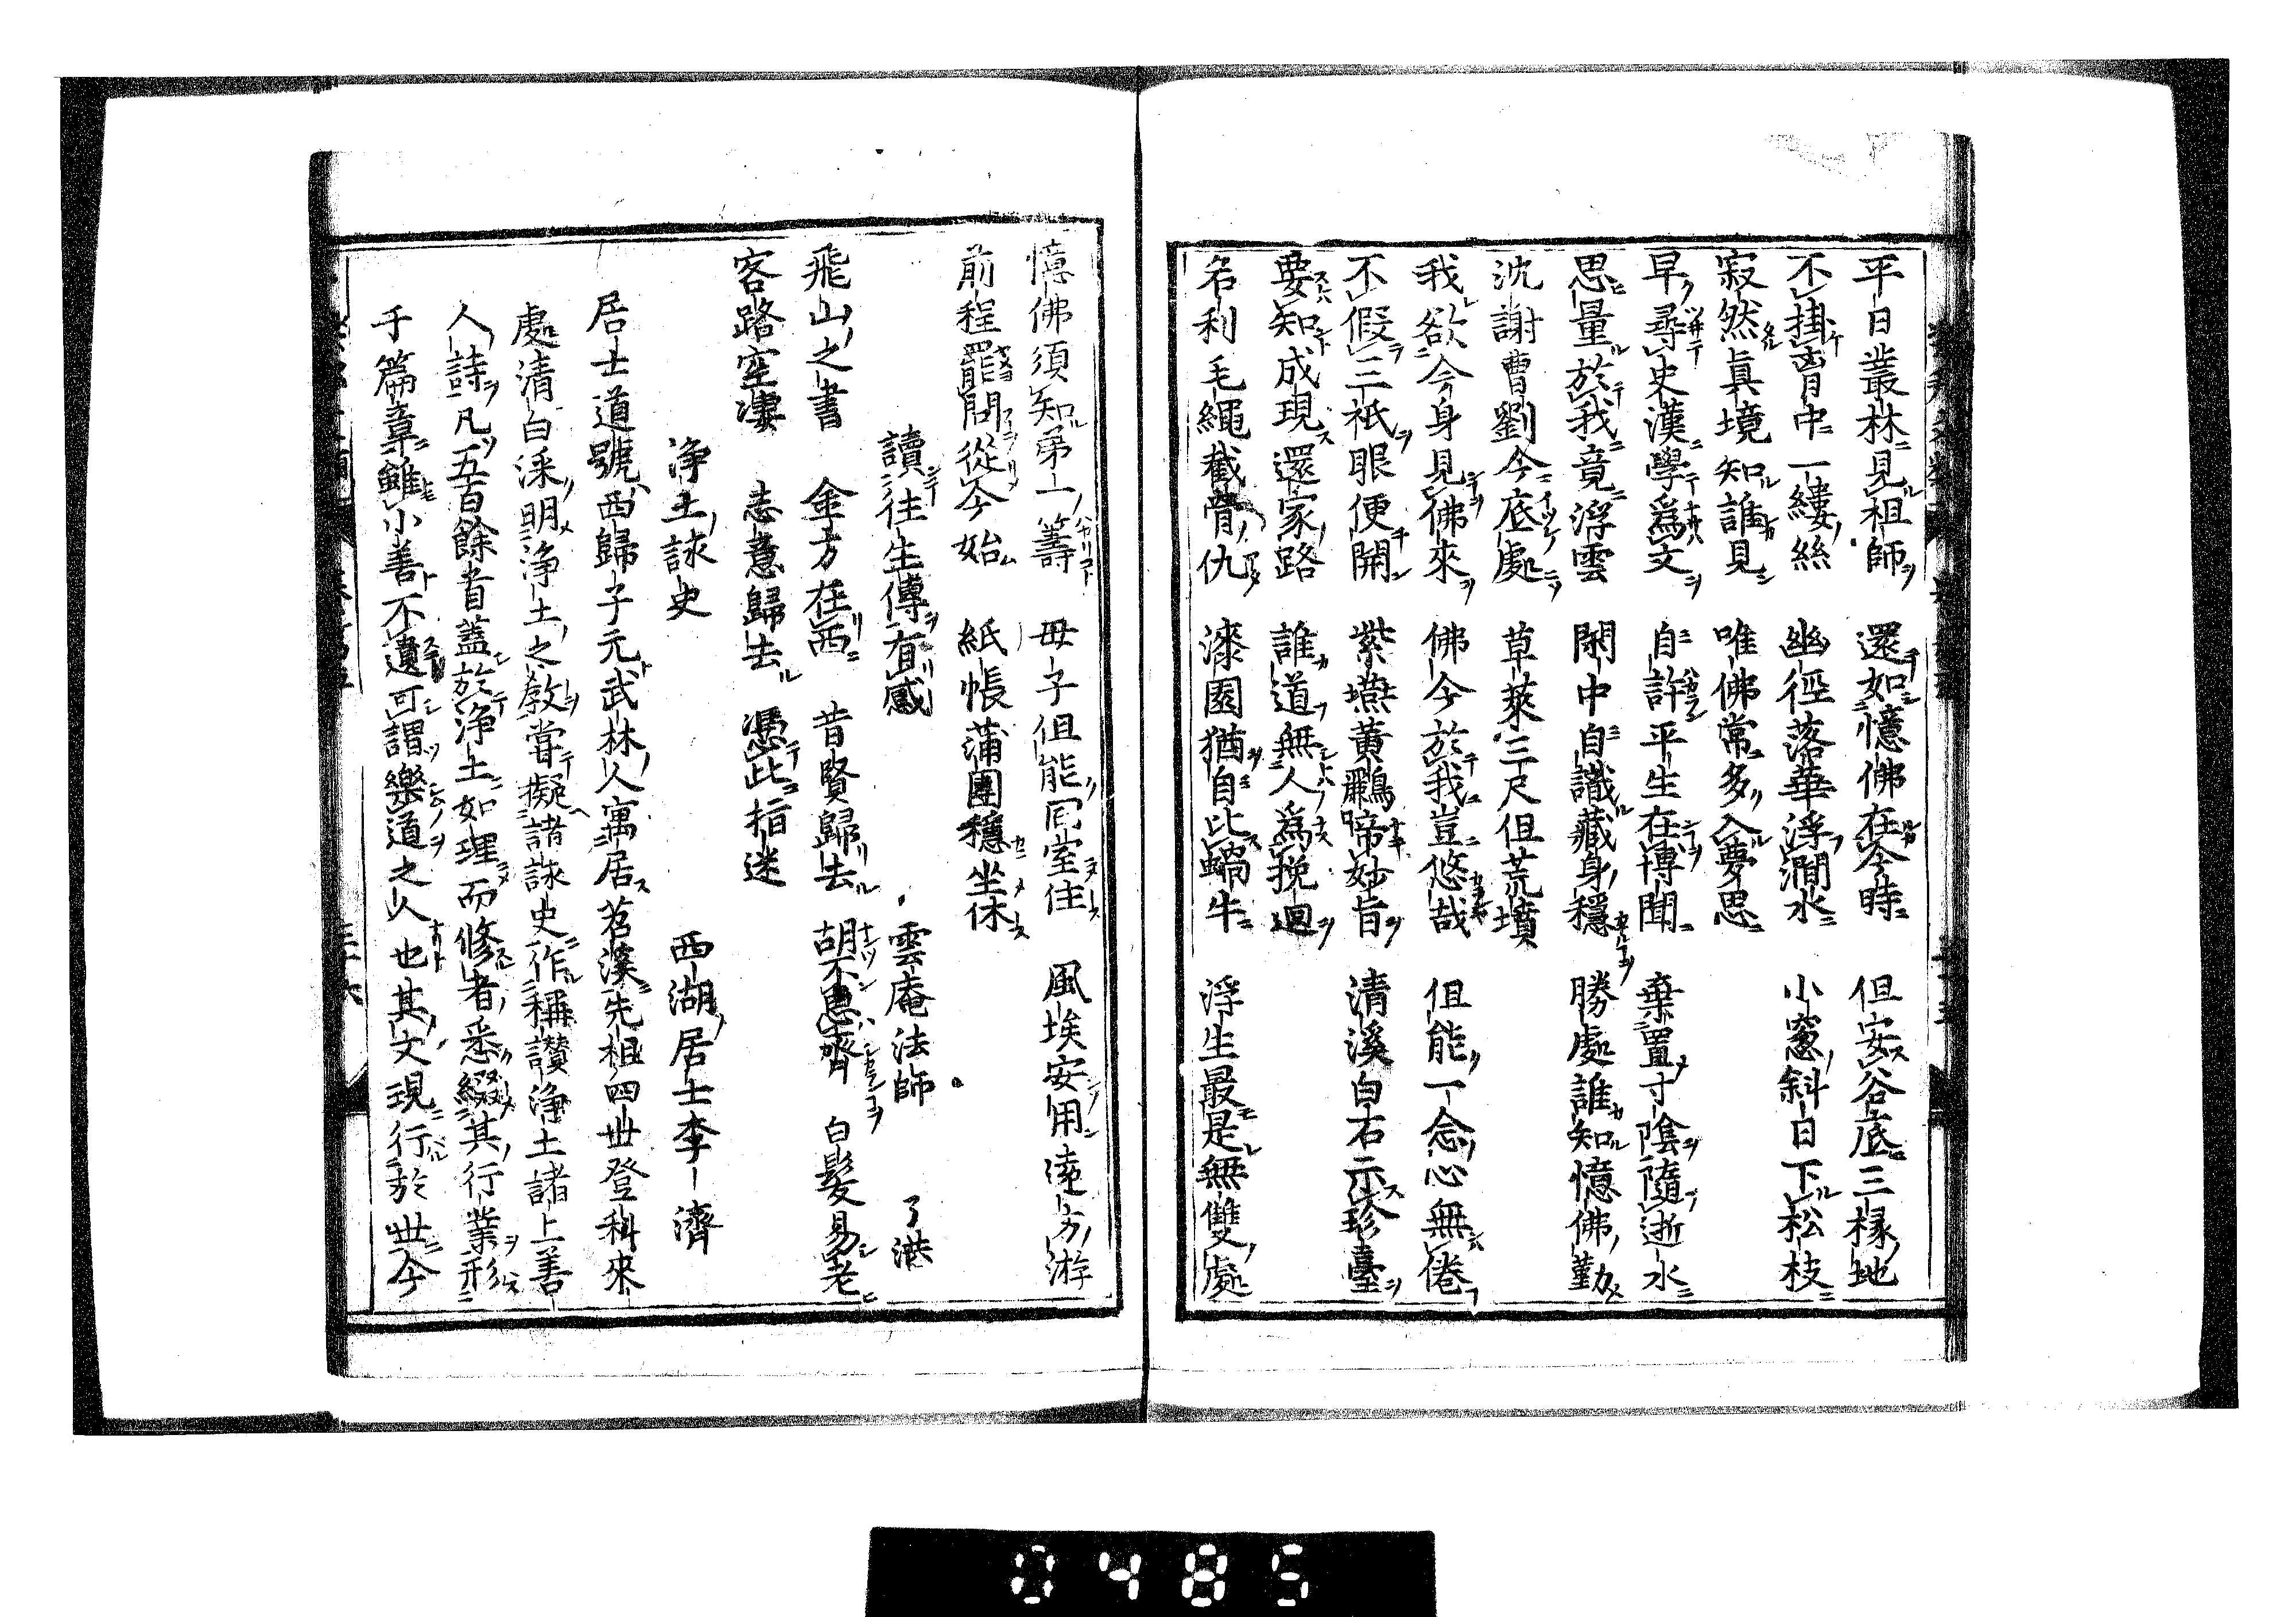 平日叢林見祖師　還如憶佛在今時　但安谷底三椽地
不掛胷中一縷絲　幽徑落華浮澗水　小窻斜日下松枝
寂然真境知誰見　唯佛常多入夢思
早尋史漢學爲文　自許平生在博聞　棄置寸陰隨逝水
思量於我竟浮雲　閑中自識藏身穩　勝處誰知憶佛勤
沈謝曹劉今底處　草萊三尺但荒墳
我欲今身見佛來　佛今於我豈悠哉　但能一念心無倦
不假三祇眼便開　紫燕黃鸝啼妙旨　清溪白石示珍臺
要知成現還家路　誰道無人爲挽迴
名利毛繩截骨仇　漆園猶自比蝸牛　浮生最是無雙處
憶佛須知第一籌　母子但能同室住　風埃安用遠方游
前程罷問從今始　紙帳蒲團穩坐休
讀往生傳有感　雲庵法師　了洪
飛山之書　金方在西　昔賢歸去　胡不思齊　白髮易老
客路空凄　志意歸去　憑此指迷
浄土詠史　西湖居士李濟
居士道號西歸子元武林人寓居苕溪先祖四世登科來
處清白深明浄土之敎甞擬諸詠史作稱讃浄土諸上善
人詩凡五百餘首蓋於浄土如理而修者悉綴其行業形
于篇章雖小善不遺可謂樂道之人也其文現行於世今
0485